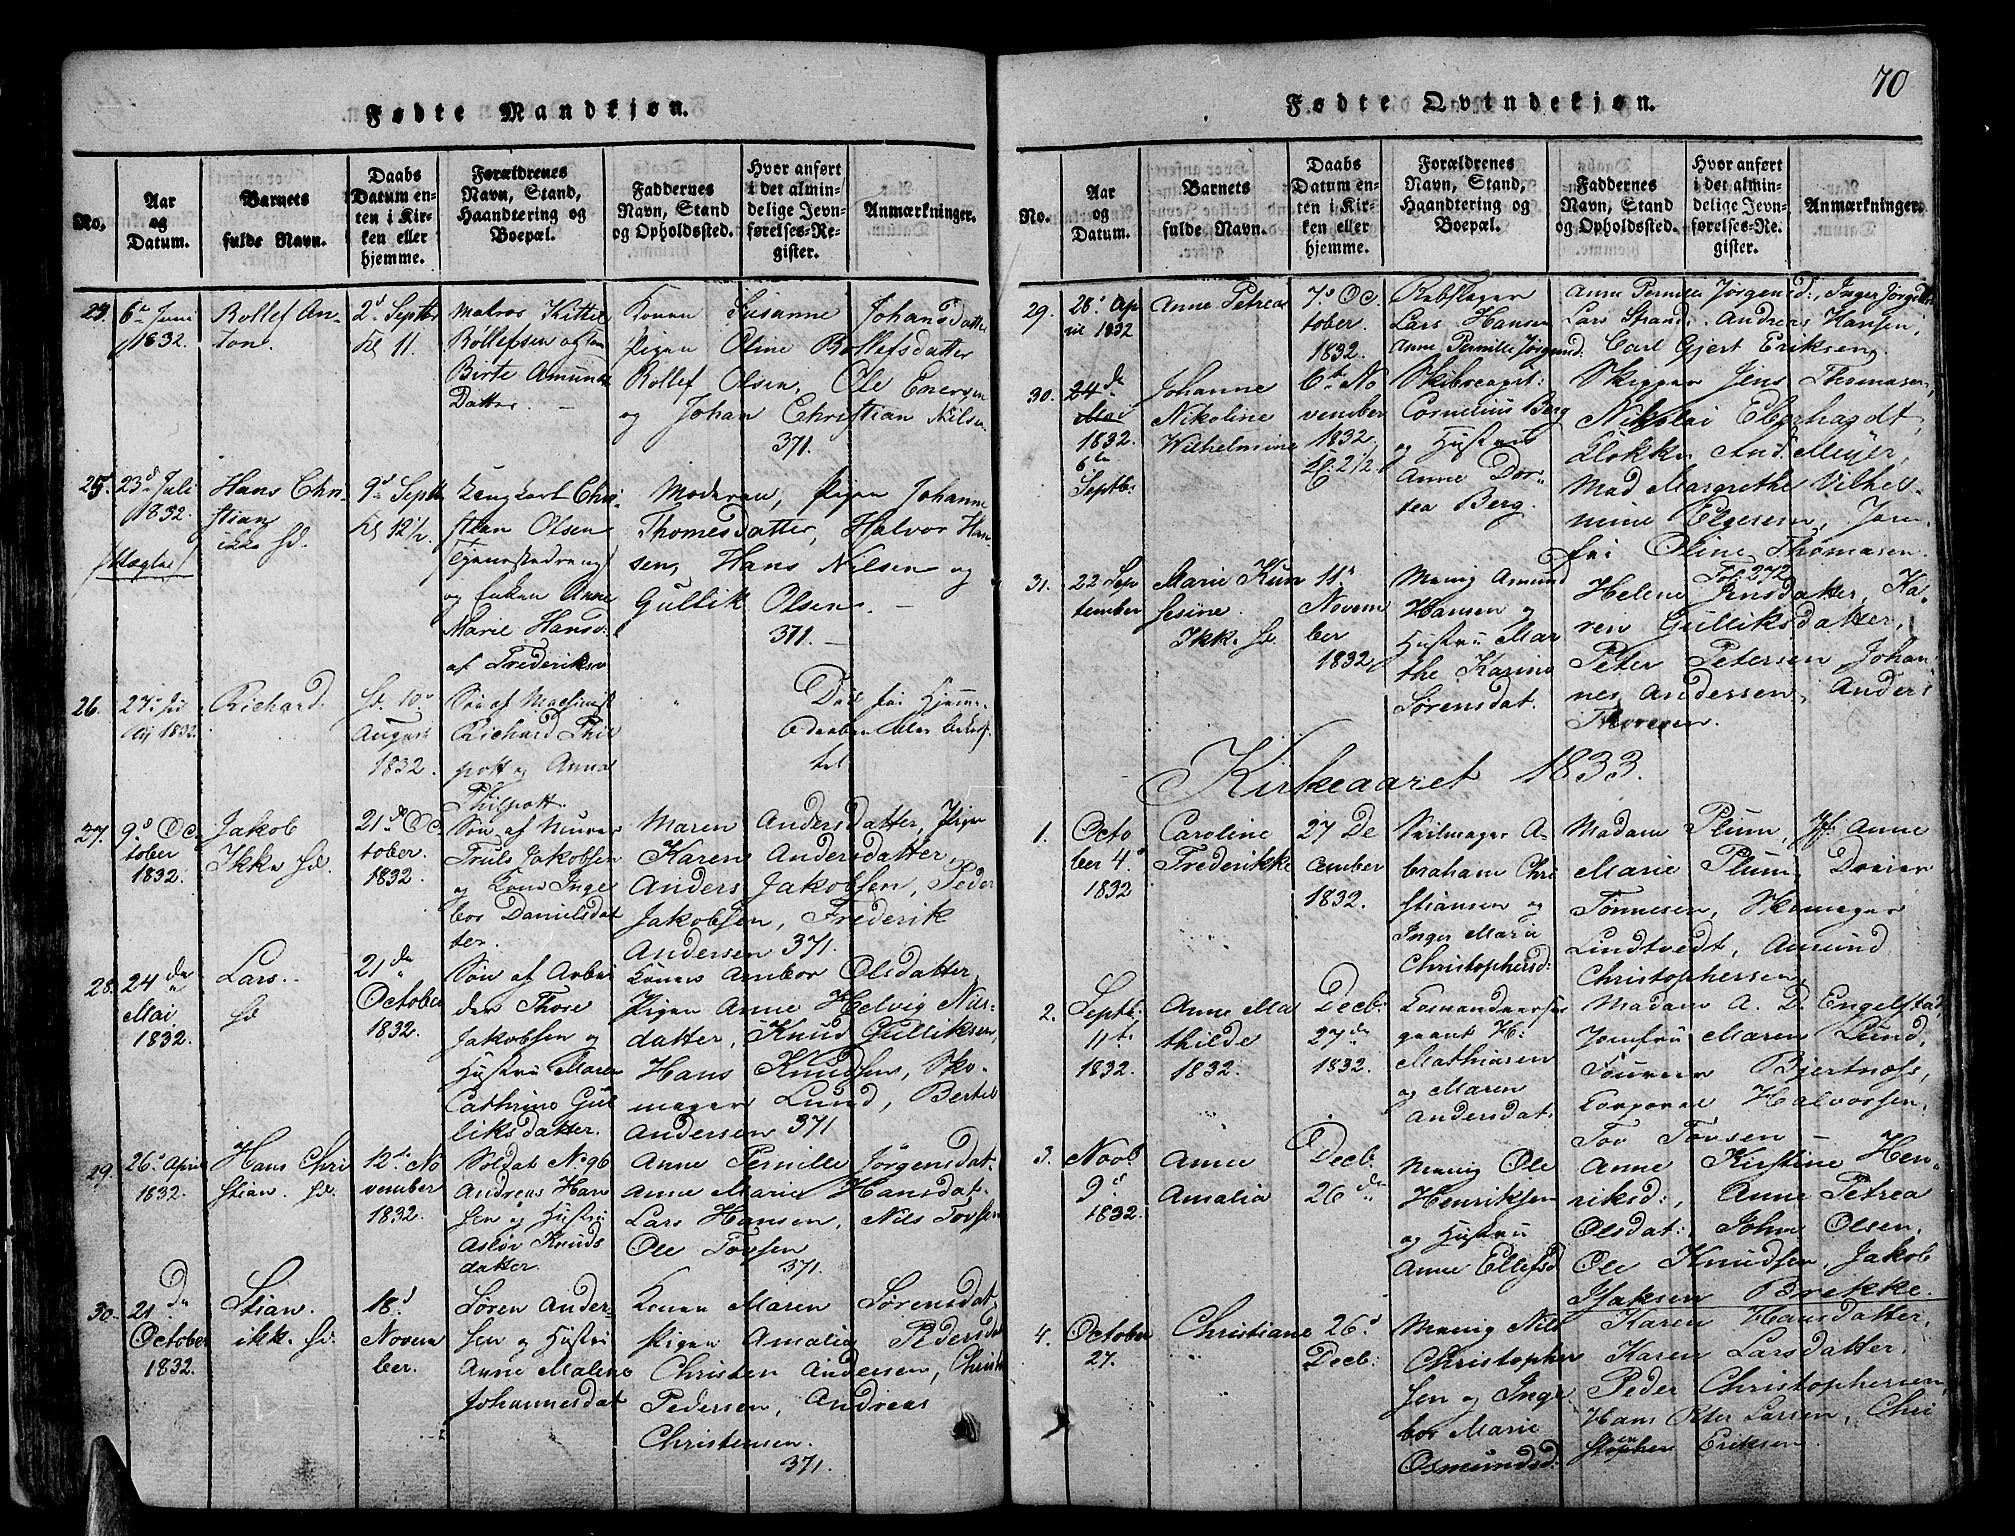 70
Fødte Mandkjøn.
No.
Aar
og
Datum.
Barnets
fulde Navn.
Daabs
Datum en-
ten i Kir-
ken eller
hjemme.
Forældrenes
Navn, Stand,
Haandtering og
Boepæl.
Faddernes
Navn, Stand
og Opholdssted.
Hvor anført
i det almin-
delige Jevn-
førelses-Re-
gister.
Anmærkninger.
6te Juni
1832.
Rollef An-
ton.
2d Septbr
Kl 11.
Matros Kittel
Rollefsen og
Birte Amunds
Datter.
Konen Susanne Johansdatter
Pigen Oline Rollefsdatter
Rollef Olsen, Ole Enersen
og Johan Christian Nilsen
371.
25. 23d Juli
1832.
Hans Chri-
stian
ikke
9d Septbr
Kl 12½
Christian Olsen
Anne
Marie Hansd:
af Frederiksv
Moderen, Pigen Johanne
Thomesdatter, Halvor Han-
sen, Hans Nilsen og
Gullik Olsen.
371.
26. 27de Ju
lii 1832.
Richard.
10de
August
1832.
Søn af
Richard Phil
pott og Anna
Philpott
27. 9d Oc
tober
1832.
Jakob
Ikke
21de Oc
tober.
1832.
Søn af Murer
Truls Jakobsen
og Kone Inge
bor Danielsdat
ter.
Maren Andersdatter, Pigen
Karen Andersdatter,
Anders Jakobsen, Peder
Jakobsen, Frederik
Andersen 371.
28. 24de
Mai
1832.
Lars.
21de
October
1832.
Søn af Arbei
der Thore
Jakobsen og
Hustru Maren
Cathrine Gul
liksdatter.
Konen Ambor Olsdatter,
Pigen Anne Helvig Niels
datter, Knud Gulliksen,
Hans Knudsen, Sko-
mager Lund, Bertel
Andersen 371
29. 26d April
1832.
Hans Chri
stian.
12te No
vember
1832.
Soldat No 96
Andreas Han
sen og Hustru
Aslov Knuds
datter.
Anne Pernille Jørgensdat.
Anne Marie Hansdat.
Lars Hansen, Nils Tovsen
Ole Tovsen
371.
30. 21de
October
1832.
Stian.
ikk.
18d
Novem
ber.
Søren Ander-
sen og Hustru
Anne Malene
Johannesdat
Konen Maren Sørensdat.
Pigen Amalia Pedersdat
Christen Andersen, Christen
Pedersen, Andreas
Christensen.
371.
Fødte Qvindekjøn.
No.
Aar
og
Datum.
Barnets
fulde Navn.
Daabs
Datum en-
ten i Kir-
ken eller
hjemme.
Forældrenes
Navn, Stand,
Haandtering og
Boepæl.
Faddernes
Navn, Stand
og Opholdssted.
Hvor anført
i det almin-
delige Jevn-
førelses-Re-
gister.
Anmærkninger.
29. 28d Ap
ril 1832
Anne Petrea
7d Oc
tober.
1832.
Rebslager
Lars Hansen
Anne Pernille Jørgensd.
Anne Pernille Jørgensd:, Inger Jørgensd:
Lars Strand. Andreas Hansen,
Carl Gjert Eriksen.
30. 24de
Mai
1832.
6te
Septb:
Johanne
Nikoline
Wilhelmine
6te No
vember
1832,
Kl: 2½.
Cornelius Berg
og Hustru
Anne Dor-
tea Berg.
Skipper Jens Thomasen,
Nikolai Eberhardt,
Klokker And. Meyer,
Mad Margrethe Vilhel-
mine Elgesem, Jom
fru Oline Thomasen.
Fol: 272
31. 22 Sep
tember
Marie Kun
gesine.
Ikk.
11te
Novem
ber
1832,
Amund
Hansen og
Hustru Mar
the Karine
Sørensdat.
Helene Jensdatter, Ka-
ren Gulliksdatter,
Peter Petersen, Johan-
nes Andersen, Anders
Thoresen.
Kirkeaaret 1833.
1. Octo
ber 4d
1832
Caroline
Frederikke
27 De
cember
1832.
Seilmager A-
braham Chri
stiansen og
Inger Marie
Christophersd:
Madam Plum, Jfr Anne
Marie Plum, Dreier
Tønnesen, Skomager
Lindtvedt, Amund
Christophersen
2. Septb:
11te
1832.
Anne Ma
thilde
1832.
Decb.
27de
1832.
H:
Mathiasen
og Maren
Andersdat:
Madam A. D. Engelstad,
Jomfru Maren Lund,
Bjertnæs,
Corporal Halvorsen,
Tov Tovsen
3. Novb.
9d
1832.
Anne
Amalia
Decb.
26de
Ole
Henriksen
og Hustru
Anne Ellefsd
Anne Kirstine Hen-
riksd:, Anne Petrea
Olsdat: John Olsen,
Ole Knudsen, Jakob
Isaksen Brekke.
4. October
27.
Christiane
26d
Decb:
Nils
Christopher
sen og Inge
bor Marie
Osmundsd:
Karen Hansdatter,
Karen Larsdatter.
Peder Christophersen,
Hans Peter Larsen, Chri
stopher Eriksen